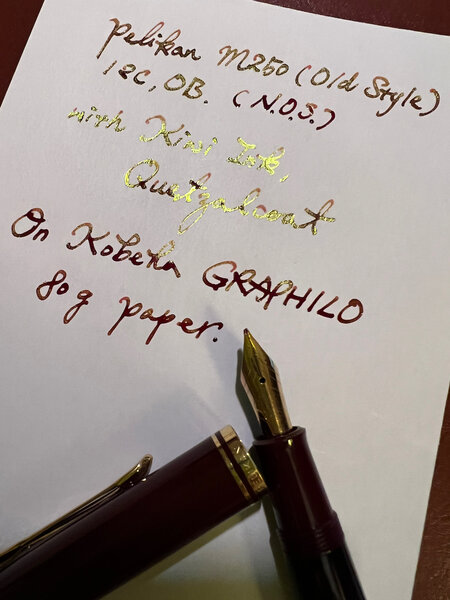 Pelikan M250 (Old Style)
12C, OB. (N.O.S.)
with Kiwi Ink,
Quetzalcoat
On Kobeha GRAPHILO
80g paper.